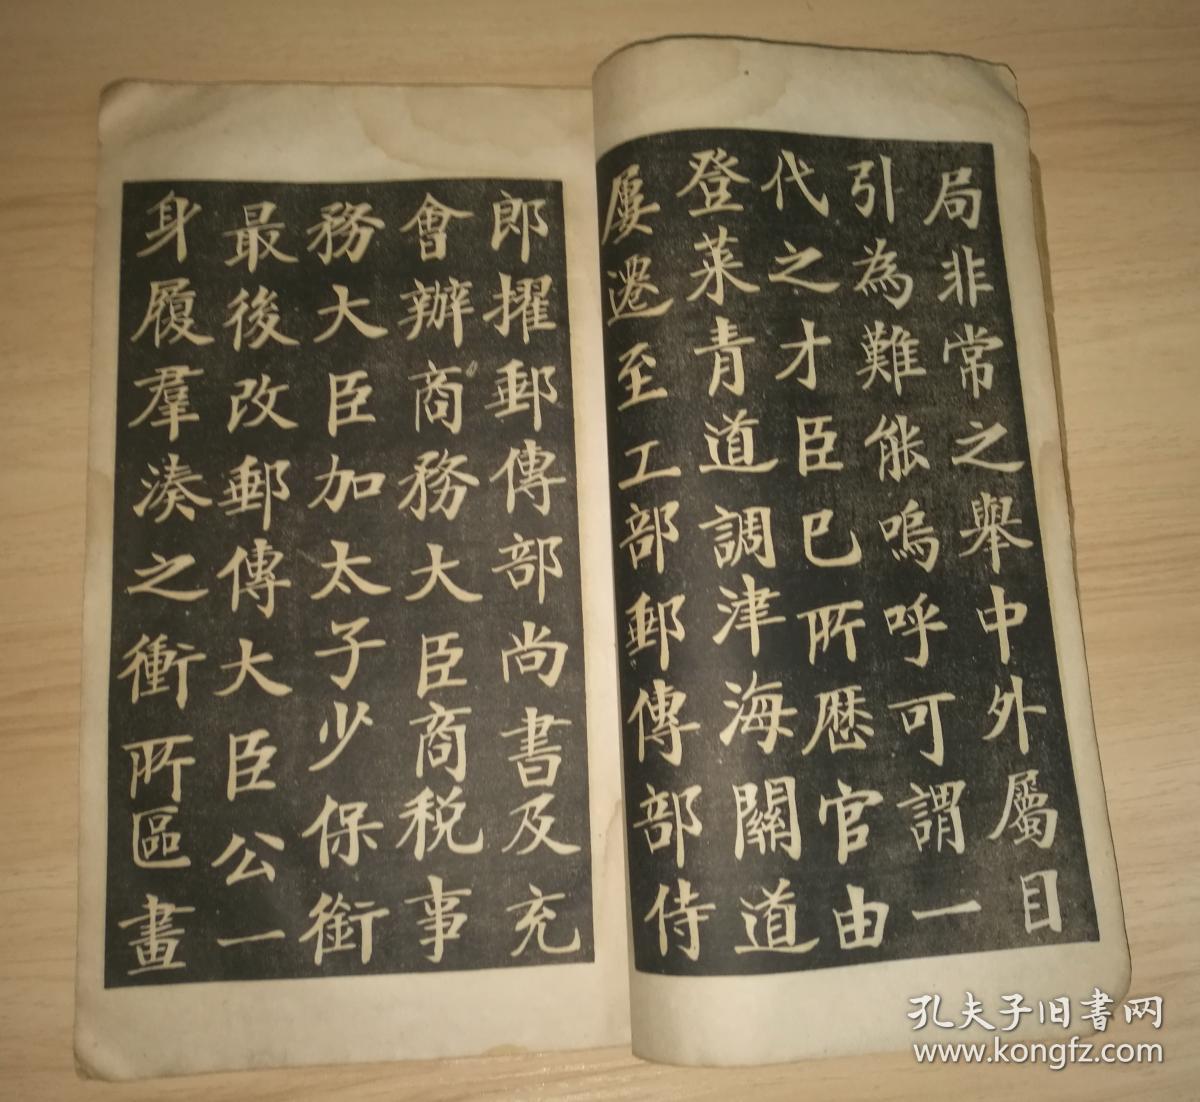 局非常之舉中外屬目
引為難能嗚呼可謂一
代之才臣已所歷官由
登萊青道調津海關道
屢遷至工部郵傳部侍
郎擢郵傳部尚書及充
會辦商務大臣商税事
務大臣加太子少保銜
最後改郵傳大臣公一
身履羣湊之衝所區畫
孔夫子旧书网
www.kongfz.com